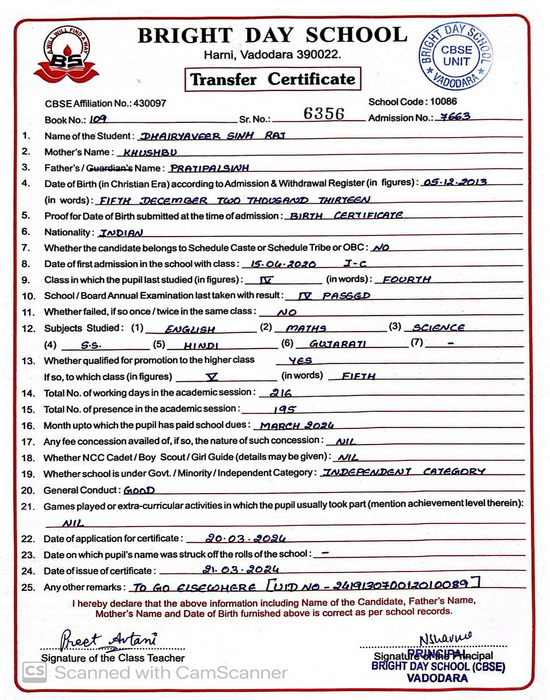 A WILL WILL FIND A WAY
BS
BRIGHT DAY SCHOOL
Harni, Vadodara 390022.
Transfer Certificate
BRIGHT DAY SCHOOL
CBSE
UNIT
VADODARA
CBSE Affiliation No.: 430097 School Code : 10086
Book No.: 109 Sr. No.: 6356 Admission No.: 7663
1. Name of the Student : DHAIRYAVEER SINH RAJ
2. Mother's Name : KHUSHBU
3. Father's / Guardian's Name : PRATIPALSINH
4. Date of Birth (in Christian Era) according to Admission & Withdrawal Register (in figures) : 05-12-2013
(in words) : FIFTH DECEMBER TWO THOUSAND THIRTEEN
5. Proof for Date of Birth submitted at the time of admission : BIRTH CERTIFICATE
6. Nationality : INDIAN
7. Whether the candidate belongs to Schedule Caste or Schedule Tribe or OBC : NO
8. Date of first admission in the school with class : 15-04-2020 I-C
9. Class in which the pupil last studied (in figures) : IV (in words) : FOURTH
10. School / Board Annual Examination last taken with result : IV PASSED
11. Whether failed, if so once / twice in the same class : NO
12. Subjects Studied : (1) ENGLISH (2) MATHS (3) SCIENCE
(4) S.S. (5) HINDI (6) GUJARATI (7) -
13. Whether qualified for promotion to the higher class YES
If so, to which class (in figures) V (in words) FIFTH
14. Total No. of working days in the academic session : 216
15. Total No. of presence in the academic session : 195
16. Month upto which the pupil has paid school dues : MARCH 2024
17. Any fee concession availed of, if so, the nature of such concession : NIL
18. Whether NCC Cadet / Boy Scout / Girl Guide (details may be given) : NIL
19. Whether school is under Govt. / Minority / Independent Category : INDEPENDENT CATEGORY
20. General Conduct : GOOD
21. Games played or extra-curricular activities in which the pupil usually took part (mention achievement level therein) :
NIL
22. Date of application for certificate : 20-03-2024
23. Date on which pupil's name was struck off the rolls of the school : -
24. Date of issue of certificate : 21-03-2024
25. Any other remarks : TO GO ELSEWHERE [UID NO - 241913070012010089]
I hereby declare that the above information including Name of the Candidate, Father's Name,
Mother's Name and Date of Birth furnished above is correct as per school records.
Preet Artani
Signature of the Class Teacher
Signature of the Principal
PRINCIPAL
BRIGHT DAY SCHOOL (CBSE)
VADODARA
CS Scanned with CamScanner